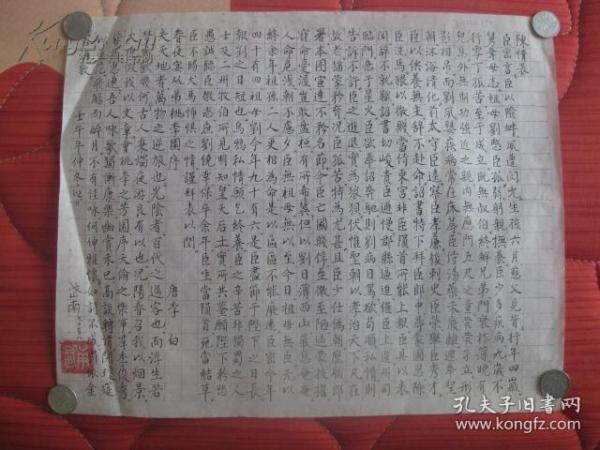 陳情表
臣密言臣以險釁夙遭閔凶生孩六月慈父見背行年四歲
舅奪母志祖母劉愍臣孤弱躬親撫養臣少多疾病九歲不
行零丁孤苦至于成立既無叔伯終鮮兄弟門衰祚薄晚有
兒息外無期功強近之親內無應門五尺之童煢煢孑立形
影相弔而劉夙嬰疾病常在床蓐臣侍湯藥未嘗廢離逮奉聖
朝沐浴清化前太守臣逵察臣孝廉後刺史臣榮舉臣秀才
臣以供養無主辭不赴命詔書特下拜臣郎中尋蒙國恩除
臣洗馬猥以微賤當侍東宮非臣隕首所能上報臣具以表
聞辭不就職詔書切峻責臣逋慢郡縣逼迫催臣上道州司
臨門急于星火臣欲奉詔奔馳則劉病日篤欲苟順私情則
告訴不許臣之進退實為狼狽伏惟聖朝以孝治天下凡在
故老猶蒙矜育況臣孤苦特為尤甚且臣少仕偽朝歷職郎
署本圖宦達不矜名節今臣亡國賤俘至微至陋過蒙拔擢
寵命優渥豈敢盤桓有所希冀但以劉日薄西山氣息奄奄
人命危淺朝不慮夕臣無祖母無以至今日祖母無臣無以
終餘年祖孫二人更相為命是以區區不能廢遠臣密今年
四十有四祖母劉今年九十有六是臣盡節于陛下之日長
報劉之日短也烏鳥私情願乞終養臣之辛苦非獨蜀之人
士及二州牧伯所見明知皇天后土實所共鑒願陛下矜愍
愚誠聽臣微志庶劉僥倖保卒餘年臣生當隕首死當結草
臣不勝犬馬怖懼之情謹拜表以聞
春夜宴從弟桃李園序 唐李白
夫天地者萬物之逆旅也光陰者百代之過客也而浮生若
夢為歡幾何古人秉燭夜遊良有以也況陽春召我以煙景
大塊假我以文章會桃李之芳園序天倫之樂事群季俊秀
皆為惠連吾人詠歌獨慚康樂幽賞未已高談轉清瓊筵
坐花飛羽觴而醉月不有佳詠何伸雅懷如詩不成罰依金
谷酒數
壬午年仲冬
孔夫子旧书网
www.kongfz.com